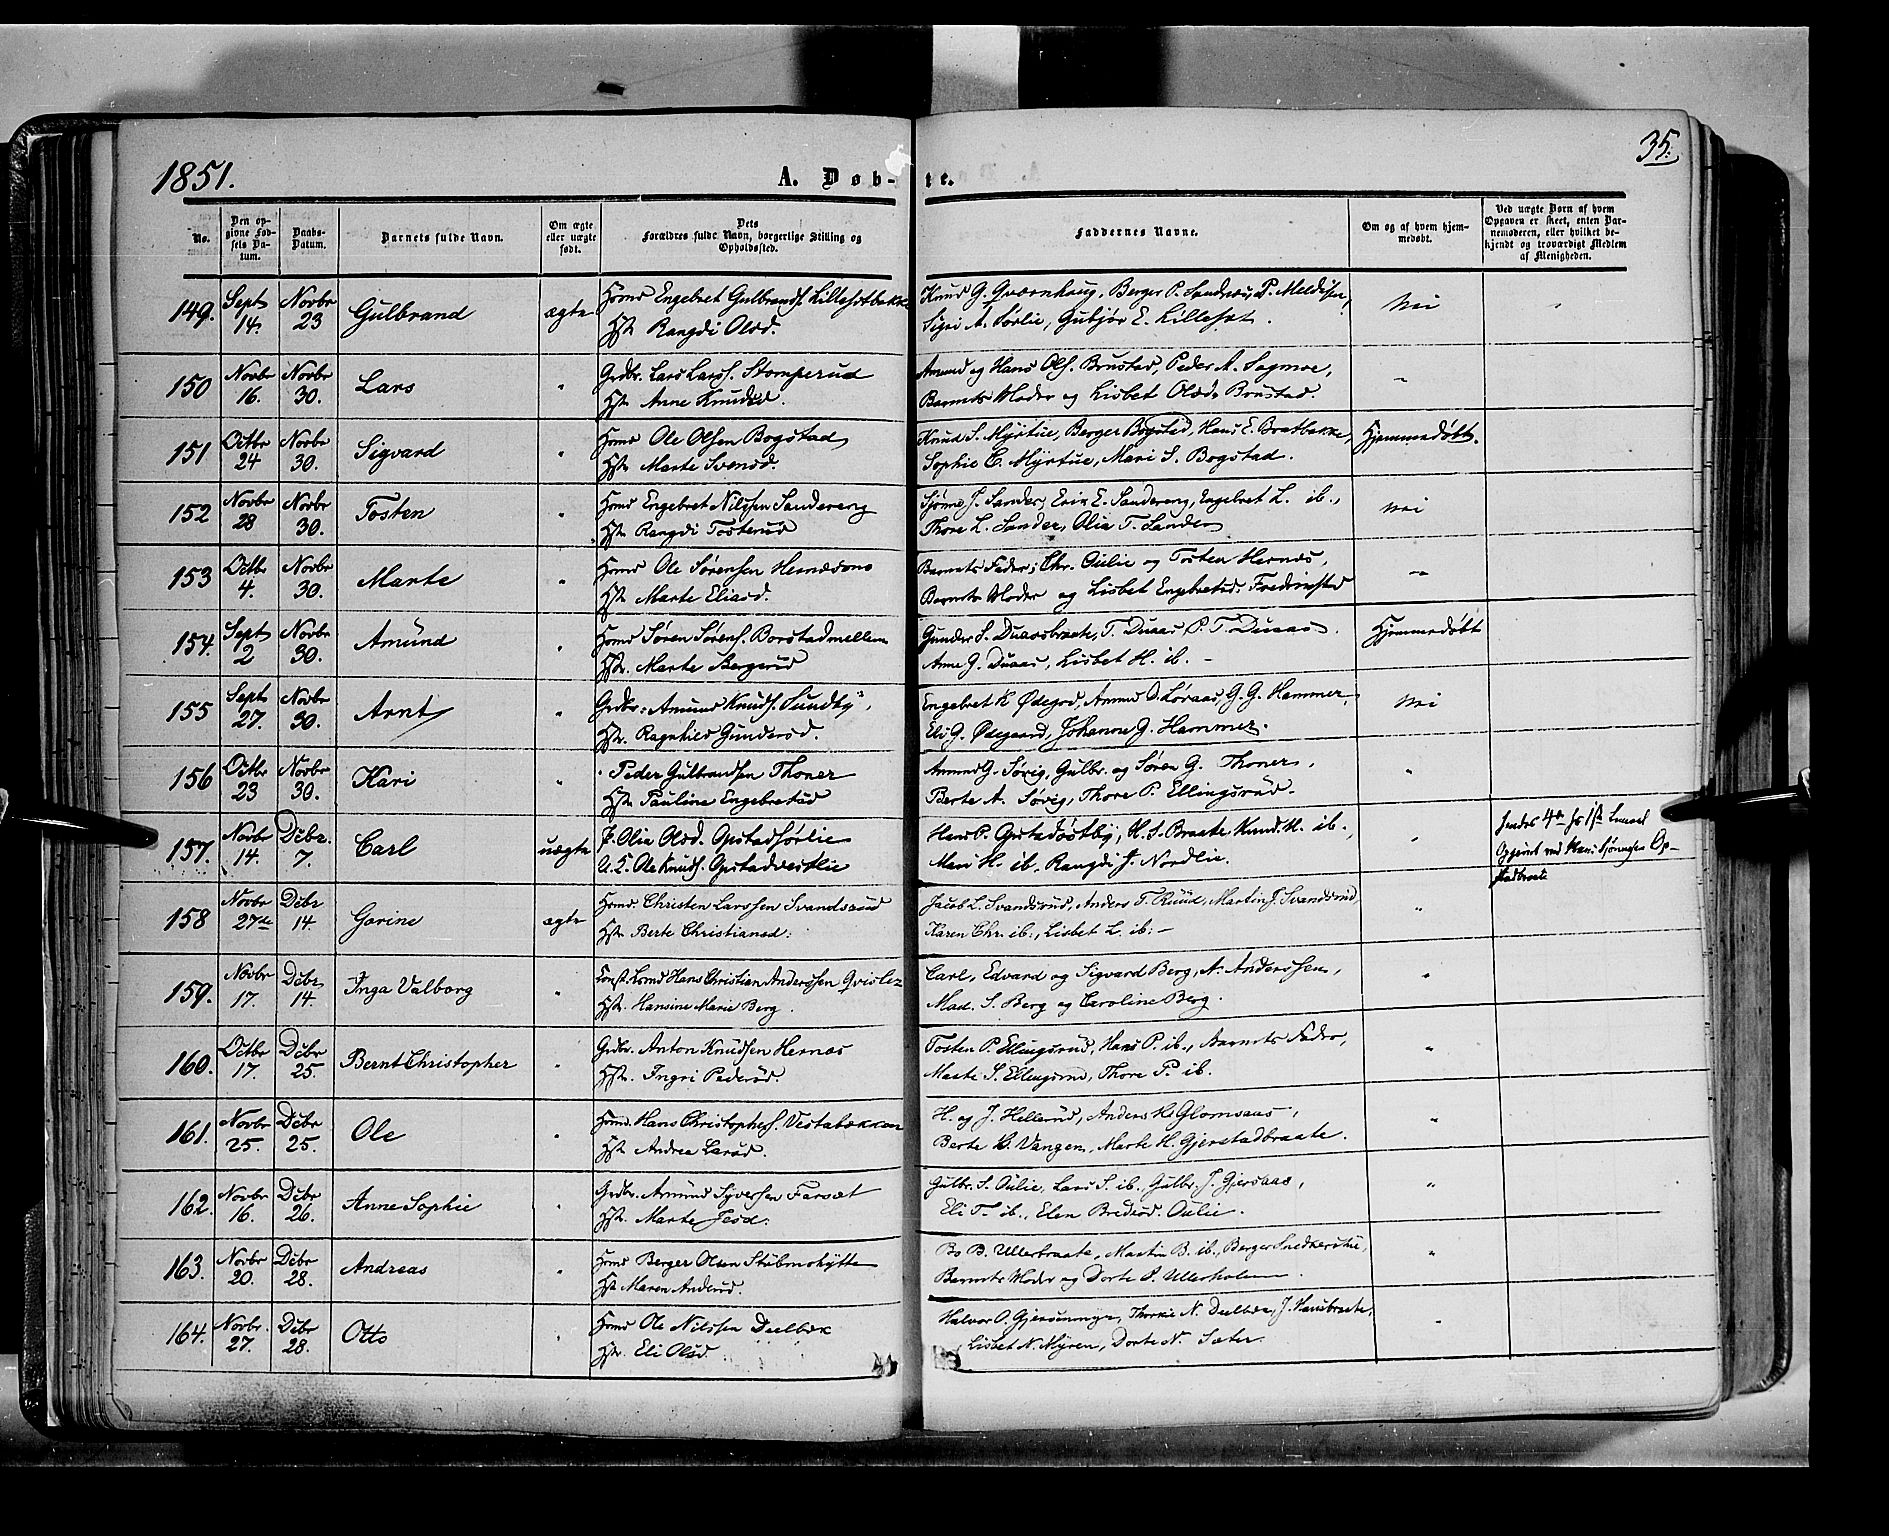 1851.
A. Døb-
te.
35.
No.
Den op-
givne Fød-
sels Da-
tum.
Daabs-
Datum.
Barnets fulde Navn.
Om ægte
eller uægte
født.
Dets
Forældres fulde Navn, borgerlige Stilling og
Opholdssted.
Faddernes Navne.
Om og af hvem hjem-
medøbt.
Ved uægte Børn af hvem
Opgaven er skeet, enten Bar-
nemoderen, eller hvilket be-
kjendt og troværdigt Medlem
af Menigheden.
149. Septr 14. Novbr 23 Gulbrand ægte
Hsmd Engebret Gulbrands. Lillesætbakke
Hst. Rangdi Olsd.
Knud G. Qværnhaug, Berger P.
Sigri A. Sørlie, Gubjør E. Lillesæt.
Nei
150 Novbr 16. Novbr 30. Lars "
Grdbr. Lars Larss. Stomperud
Hst. Anne Knudsd.
Amund og Hans Ols. Brustad, Peder A. Sagmoe,
Barnets Moder og Lisbet Olsd. Brustad.
"
151 Octbr 24 Novbr 30. Sigvard "
Hsmd Ole Olsen Bogstad
Hst. Marte Svensd.
Knud S. Myrtue, Berger Bogstad, Hans E. Bratbakke,
Sophie C. Myrtue, Mari S. Bogstad.
Hjemmedøbt.
152 Novbr 28 Novbr 30. Tosten "
Hsmd Engebret Nilssen Sandereng
Hst. Rangdi Tostensd
Erik E. Sandereng, Engebret L. ib.,
Thore L. Sander, Olia T. Sander
Nei
153 Octbr 4. Novbr 30. Marte "
Hsmd Ole Sørensen Hernæsmo
Hst. Marte Eliasd.
Barnets Fader, Chr. Oulie og Tosten Hernæs,
Barnets Moder og Lisbet Engebretsd. Fredrikstad
"
154. Septr 2 Novbr 30. Amund "
Hsmd Søren Sørens. Borstadmellem
Hst. Marte Bergersd
Gunder S. Duaasbraate, T. Duaas, P. T. Duaas.
Anne G. Duaas, Lisbet H. ib. -
Hjemmedøbt
155 Septr 27. Novbr 30. Arnt "
Grdbr. Amund Knuds. Sundby,
Hst. Ragnhild Gundersd.
Engebret K Ødegrd, Amund O. Løvaas, G. G. Hammer,
Eli G. Ødegaard, Johanne G. Hammer.
Nei
156 Octbr 23 Novbr 30. Kari "
Peder Gulbrandsen Thoner
Hst. Pauline Engebretsd
Amund G. Søvig, Gulbr. og Søren G. Thoner,
Berte A. Søvig, Thore P. Ellingsrud.
"
157. Novbr 14. Debr. 7. Carl uægte
P. Olia Olsd. Opstadsørlie
U. K. Ole Knuds. Opstadvestlie
Hans P. Opstadøstby, H. S. Braate, Knud H. ib.,
Mari H. ib. Rangdi J. Nordlie.
"
158 Novbr 27de Debr 14. Gorine ægte
Hsmd. Christen Larssen Svandsrud
Hst. Berte Christiansd.
Jacob L. Svandsrud, Anders T. Ruud, Martin J. Svandsrud,
Karen Chr. ib:, Lisbet L. ib: -
"
159. Novbr 17. Debr 14. Inga Valborg "
Hans Christian Anderssen Qvisler
Hst. Hansine Marie Berg.
Carl, Edvard og Sigvard Berg, N. Anderssen,
Mad. S. Berg og Caroline Berg.
"
160. Octbr 17. Debr 25. Bernt Christopher "
Grdbr. Anton Knudsen Hernæs
Hst. Ingri Pedersd.
Tosten P. Ellingsrud, Hans P. ib., Barnets Fader,
Marte S. Ellingsrud, Thore P. ib.
"
161. Novbr 25. Debr 25. Ole "
Hsmd. Hans Christophers. Vestabækken
Hst. Andrea Larsd.
H. og J. Hellerud, Anders H. Glomsaas,
Berte O. Vangen, Marte H. Gjerstadbraate.
"
162. Novbr 16. Debr 26. Anne Sophie "
Grdbr. Amund Syversen Farsæt
Hst. Marte Jensd.
Gulbr. S. Oulie, Lars S. ib., Gulbr. J. Gjersaas,
Eli T. ib., Elen Bredesd. Oulie.
"
163. Novbr 20. Debr 28. Andreas "
Hsmd Berger Olsen Stubmohytte
Hst Maren Andersd.
Bo B. Ullerbraate, Martin B. ib., Berger Snedkerstue,
Barnets Moder og Dorte P. Ullerholen.
"
164. Novbr. 27. Debr 28. Otto "
Hsmd Ole Nilssen Dælbæk
Hst. Eli Olsd.
Halvor O. Thorkil N. Dælbæk, J. Hansbraate,
Lisbet N. Myren, Dorte N. Sæter.
"